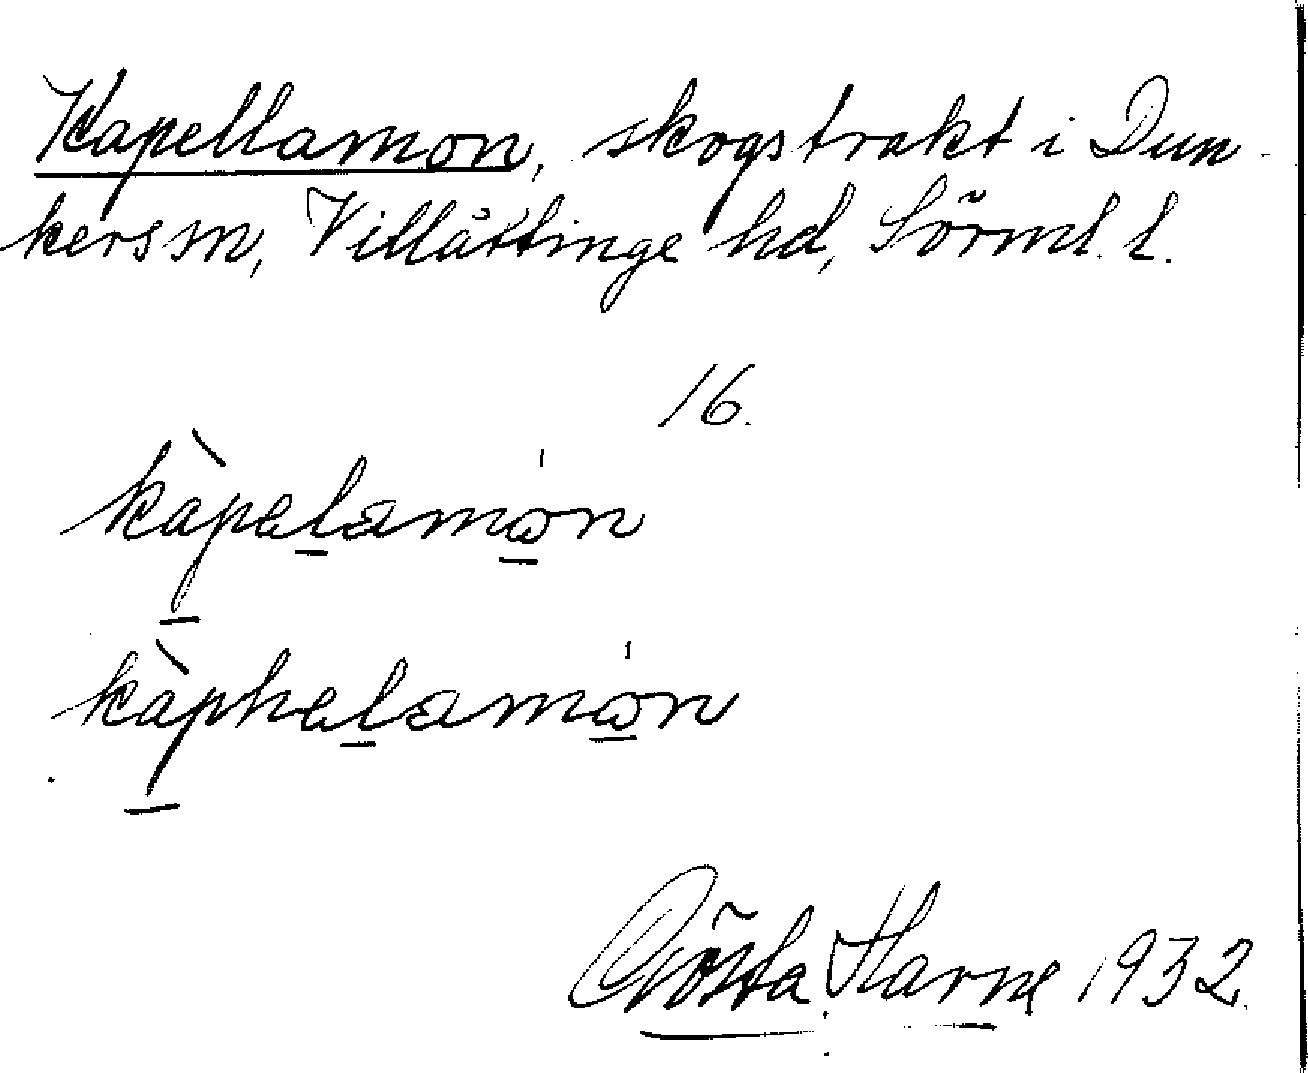 Kapellamon, skogstrakt i Dun-
kers sn, Villåttinge hd, Sörml. l.
16.
kàpalamón
kàphalamón
Gösta Harne 1932.